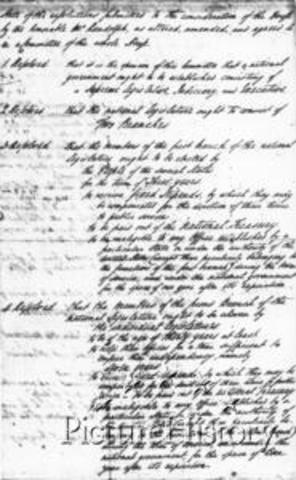 State of the resolutions submitted to the consideration of the House
by the honorable Mr Randolph, as altered, amended, and agreed to
in a Committee of the whole House.
1. Resolved that it is the opinion of this Committee that a national
government ought to be established consisting of
a Supreme Legislative, Judiciary, and Executive
2. Resolved that the national Legislature ought to consist of
Two Branches
3. Resolved that the members of the first branch of the national
Legislature ought to be elected by
the People of the several States
for the term of Three years
to receive fixed stipends, by which they may
be compensated for the devotion of their time
to public service
to be paid out of the National Treasury
to be ineligible to any Office established by a
particular State or under the authority of the
United States (except those
of the first branch)
under the national government
for the space of one year after its expiration
4. Resolved that the members of the second Branch of the
national Legislature ought to be chosen by
the individual Legislatures
to be of the age of thirty years at least
to hold their offices for a term sufficient to
ensure their independency, namely
seven years
to receive fixed stipends, by which they may be
compensated for the devotion of their time to public
service to be paid out of the National Treasury
to be ineligible to any Office established by a
particular State, or under the authority of
national government, for the space of one
year after its expiration
PictureHistory